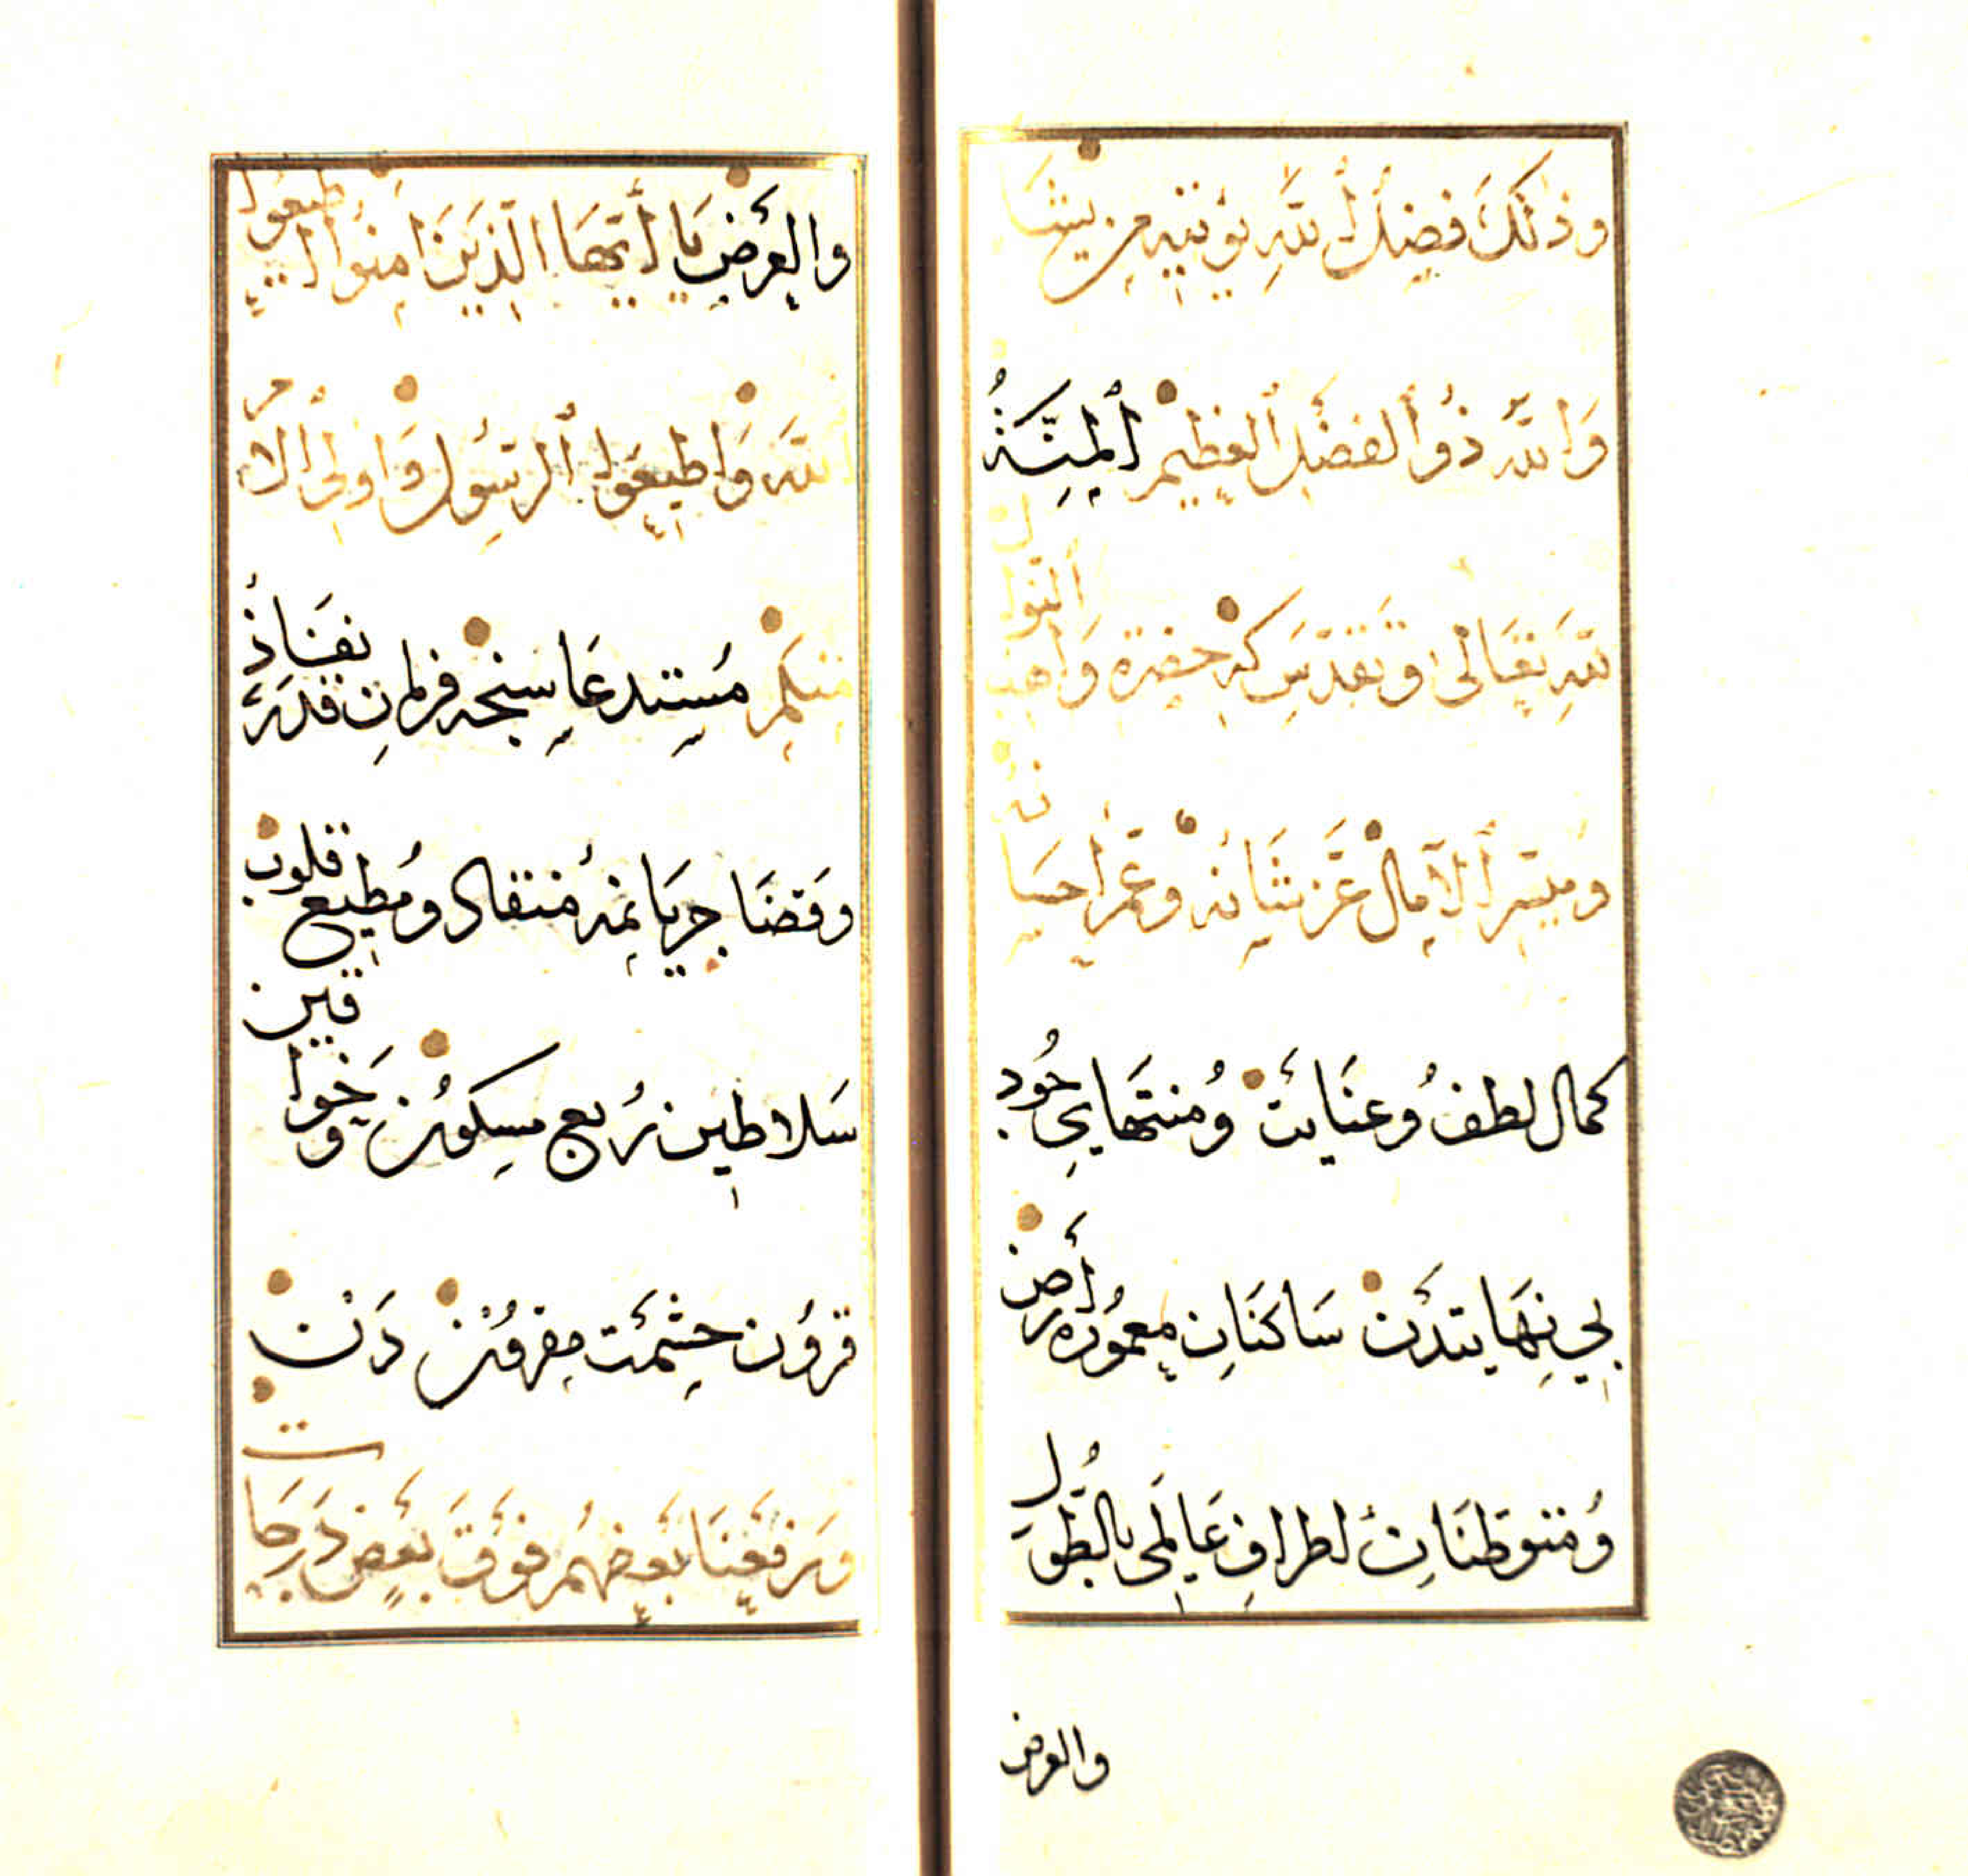 وذلك فضل الله يؤتيه من يشا
والله ذو الفضل العظيم المنة
لله تعالى وتقدس كه حضرة واهب النوال
وميسر الآمال عز شانه وعم احسانه
كمال لطف وعنايت ومنتهاي جود
بي نهايتدن ساكنان معموره ارض
ومتوطنان اطراف عالمى بالطول
والعرض
والعرض يا أيها الذين امنوا اطيعوا
الله واطيعوا الرسول واولي الامر
منكم مستدعاسنجه فرمان قدر نفاذ
وقضا جريانمه منقاد ومطيع قلوب
سلاطين ربع مسكون وخواقين
قرون حشمت مقرون دن
ورفعنا بعضهم فوق بعض درجات